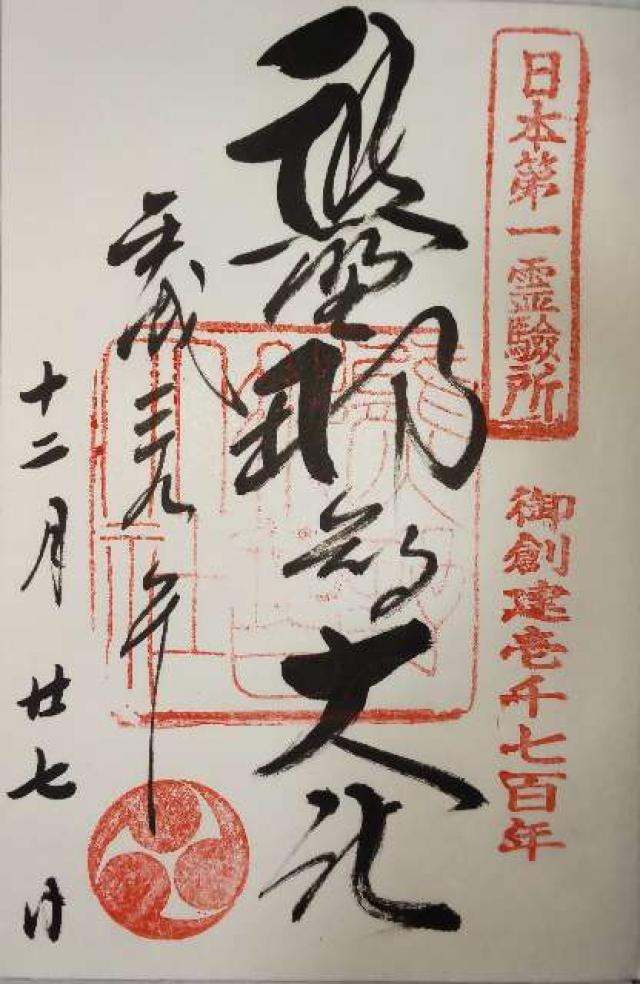 日本第一霊驗所
御創建壱千七百年
熊野那智大社
平成二十九年
十二月廿七日